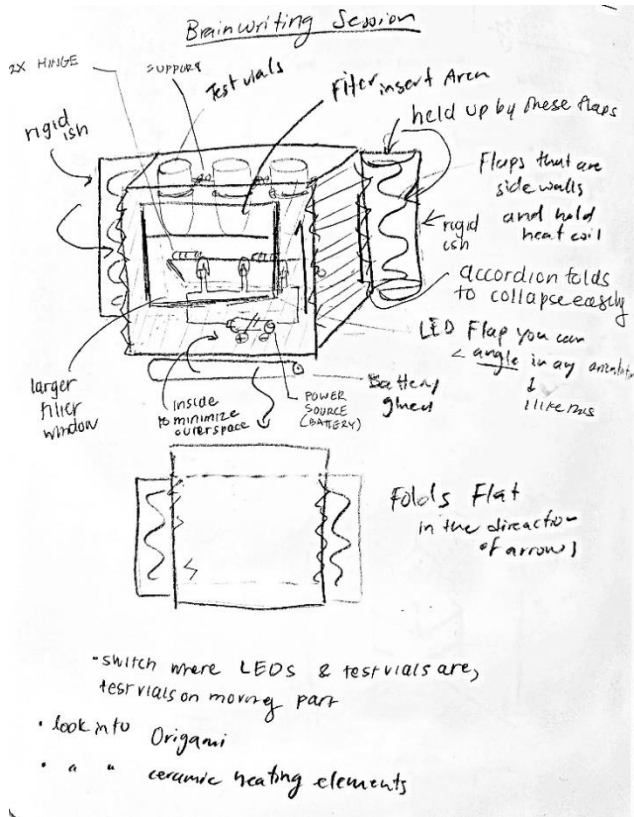 Brainwriting Session
2X HINGE
SUPPORT
Test vials
Filter insert Area
held up by these flaps
rigid
ish
Flaps that are
side walls
and hold
heat coil
rigid
ish
accordion folds
to collapse easily
LED Flap you can
angle in any
like this
larger
filter
window
inside
to minimize
outer space
POWER
SOURCE
(BATTERY)
Battery
Folds Flat
in the direaction
of arrows
• switch where LEDS & test vials are,
test vials on moving part
• look into Origami
• " " ceramic heating elements